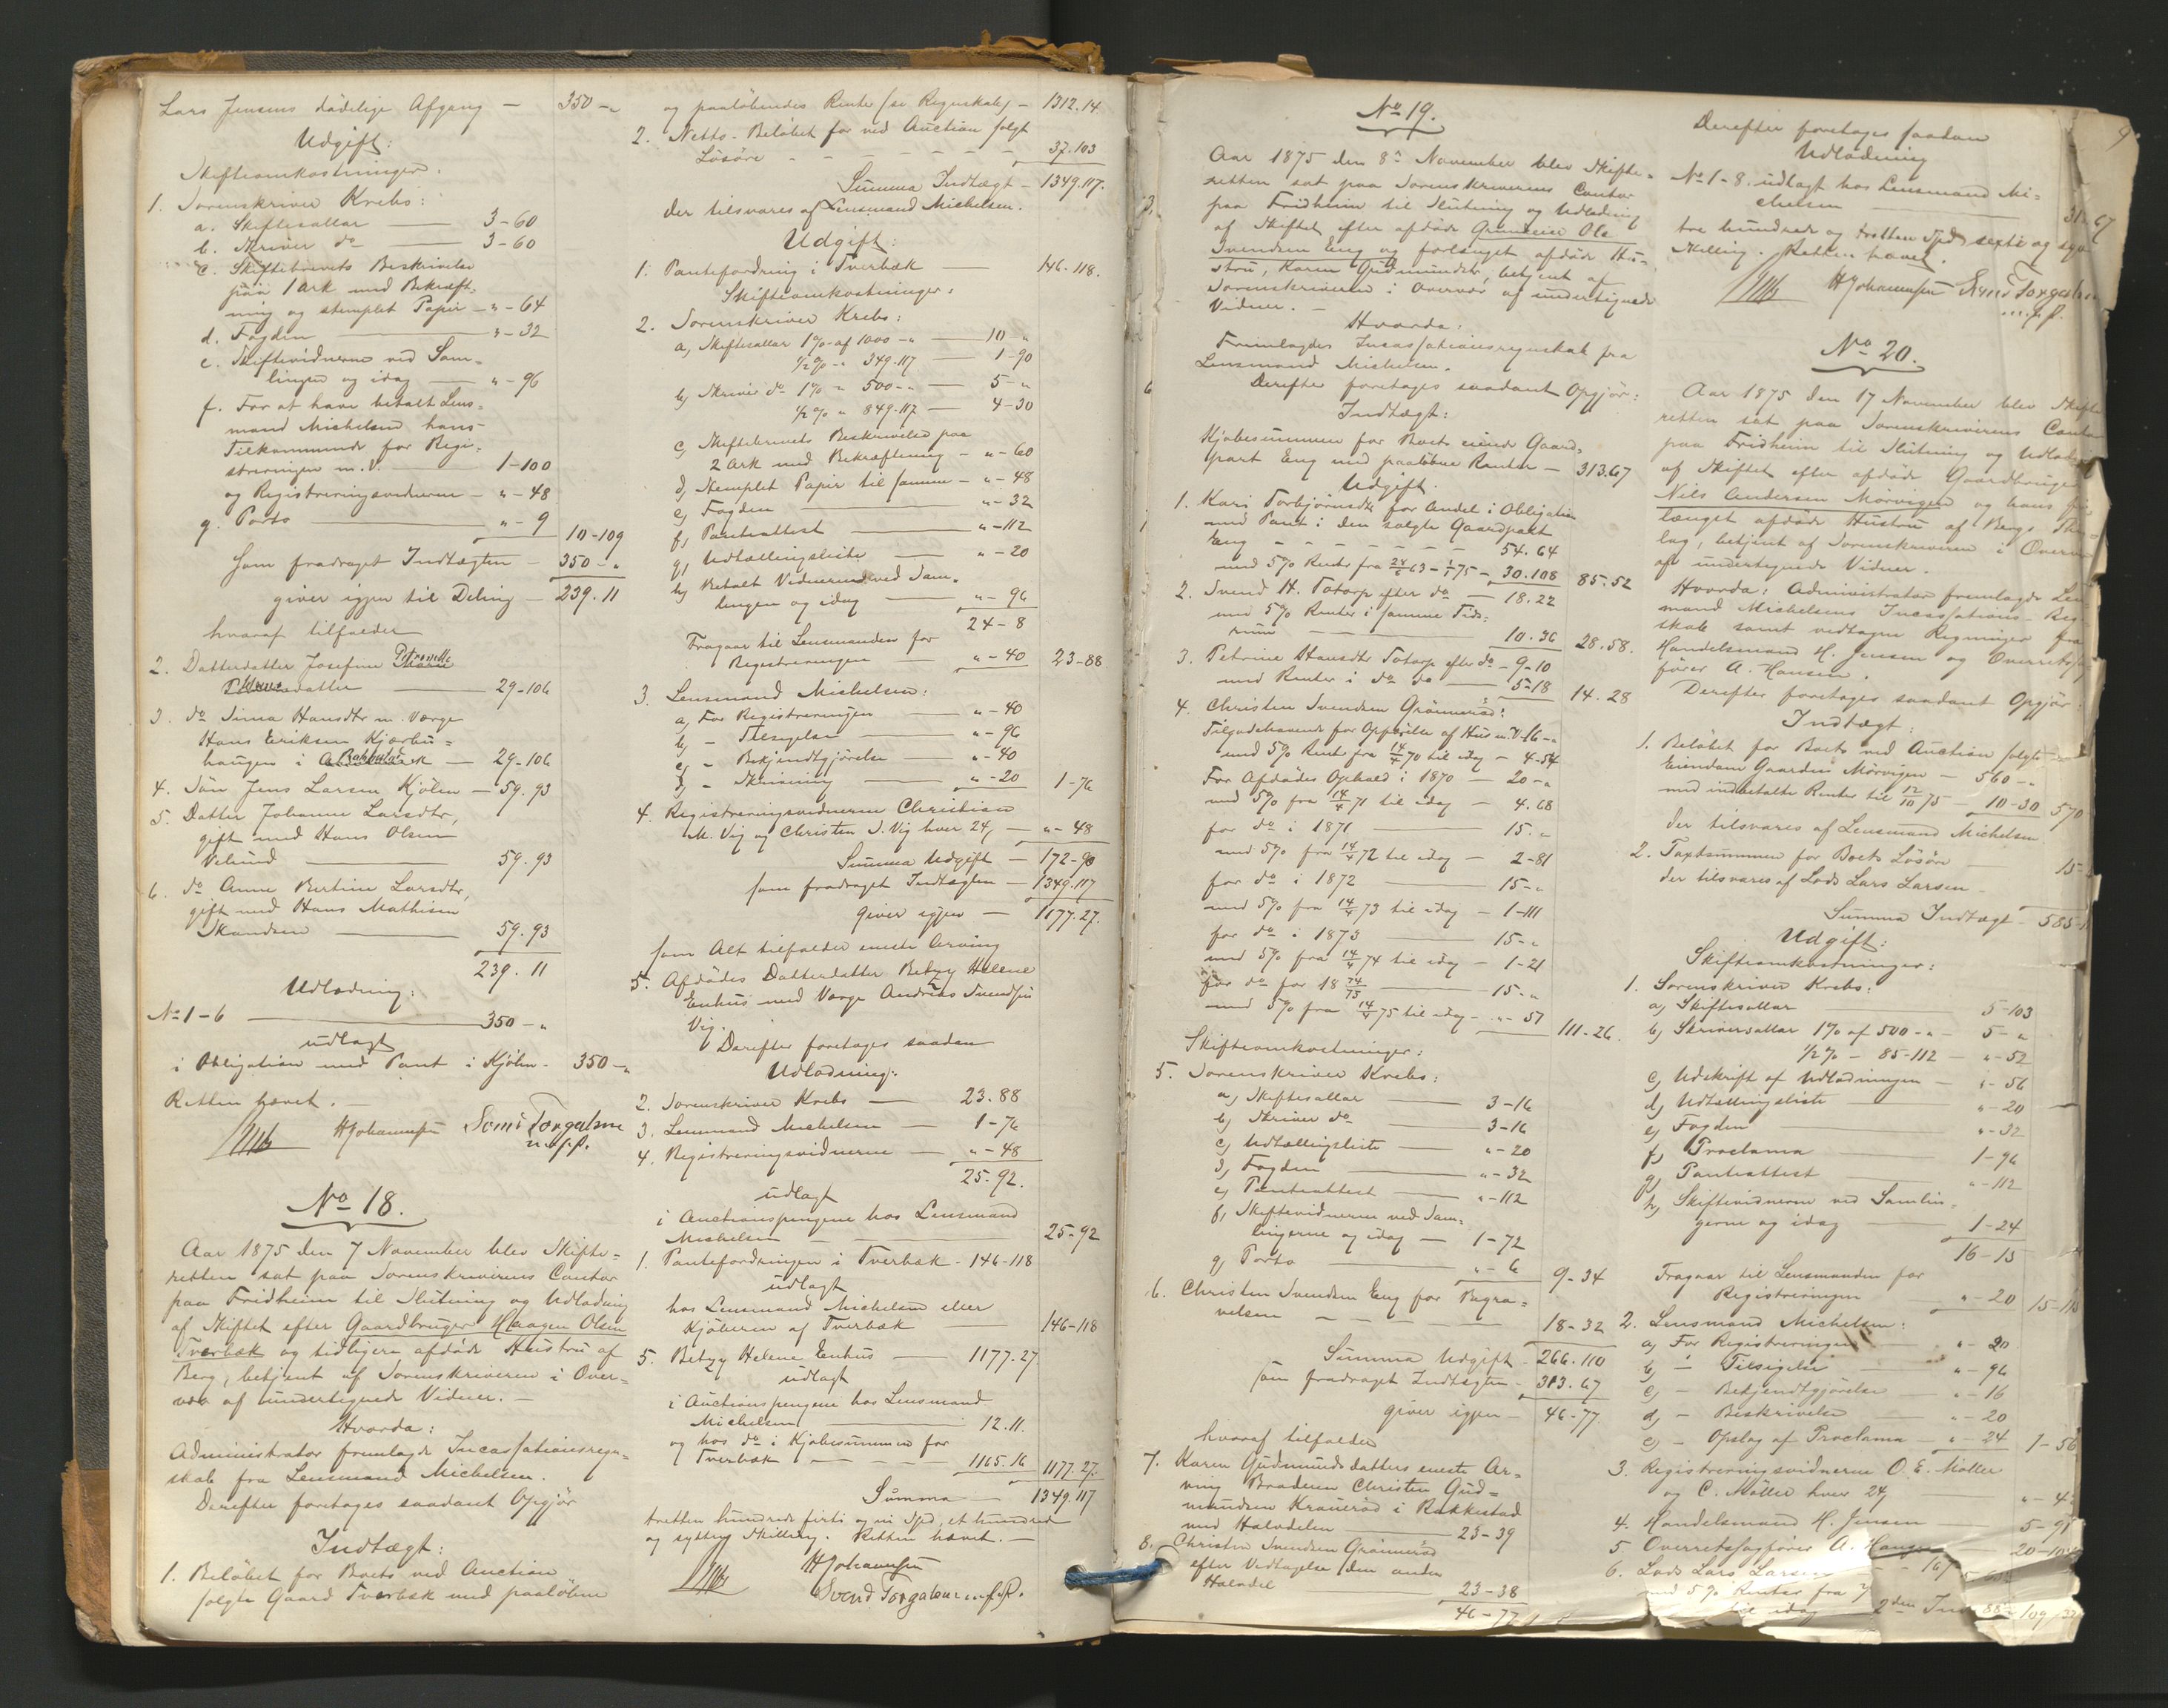 Lars Jensens dødelige Afgang — 350 - "
Udgift:
Skifteomkostninger.
1. Sorenskriver Krebs:
a. Skiftesallar — 3-60
b. Skriver do — 3-60
c. Skiftebrevets Beskrivelse
paa 1 Ark med Bekræft-
ning og stemplet Papir — " - 64
d. Fogden — " - 32
e. Skiftevidnerne ved Sam-
lingen og idag — " - 96
f. For at have betalt Lens-
mand Michelsen hans
Tilkommende for Regi-
streringen m.V. — 1-100
og Registreringsvidnerne — " - 48
g. Porto — " - 9 10-109
som fradraget Indtægten — 350 - "
giver igjen til Deling — 239.11
hvoraf tilfalder
2. Datterdatter Josefine Petronelle
datter — 29-106
3. do Sina Hansdtr m. Værge
Hans Eriksen Kjærbu-
haugen i — 29-106
4. Søn Jens Larsen Kjølen — 59.93
5. Datter Johanne Larsdtr,
gift med Hans Olsen
Velund — 59.93
6. do Anne Bertine Larsdtr,
gift med Hans Mathisen
Skandsen — 59.93
239.11
Udlodning:
No 1-6 — 350 - "
udlagt
i Obligation med Pant i Kjølen - 350 - "
Retten hævet. —
HJohannesen
No 18.
Aar 1875 den 7 November blev Skifte-
retten sat paa Sorenskriverens Contor
paa Fridheim til Slutning og Udlodning
af Skiftet efter Gaardbruger Haagen Olsen
Tverbæk og tidligere afdøde Hustru af
Berg, betjent af Sorenskriveren i Over-
vær af undertegnede Vidner. —
Hvorda:
Administrator fremlagde Incassationsregn-
skab fra Lensmand Michelsen.
Derefter foretages saadant Opgjør
Indtægt:
1. Beløbet for Boets ved Auction
solgte Gaard Tverbæk med paaløbne
og paaløbendes Renter (se Regnskab) — 1312.14
2. Netto-Beløbet for ved Auction solgt
Løsøre - - - - - - 37.103
Summa Indtægt — 1349.117.
der tilsvares af Lensmand Michelsen.
Udgift:
1. Pantefordring i Tverbæk — 146.118.
Skifteomkostninger:
2. Sorenskriver Krebs:
a, Skiftesallar 1% af 1000 - " — 10 "
1/2% - " 349.117 1-90
b, Skriver do 1% " 500 - " — 5 - "
1/2% " 849.117 — 4-30
c, Skiftebrevets Beskrivelse paa
2 Ark med Bekræftning — " - 60
d, Stemplet Papir til samme — " - 48
e, Fogden — " - 32
f, Panteattest — " - 112
g, Udtællingsliste — " - 20
h, Betalt Vidnerne ved Sam-
lingen og idag — " - 96
24-8
Fragaar til Lensmanden for
Registreringen — " - 40 23-88
3. Lensmand Michelsen:
a, For Registreringen — " - 40
b, - Tilsigelse — " - 96
c, - Bekjendtgjørelse — " - 40
d, - Skrivning — " - 20 1-76
4. Registreringsvidnerne Christian
M. Vig og Christen S. Vig hver 24, — " - 48
Summa Udgift — 172-90
som fradraget Indtægten — 1349.117
giver igjen — 1177.27.
som Alt tilfalder eneste Arving
5. Afdødes Datterdatter Betzy Helene
Enhus med Værge Andreas Svendsen
Vig.
Derefter foretages saadan
Udlodning:
2. Sorenskriver Krebs — 23.88
3. Lensmand Michelsen — 1-76
4. Registreringsvidnerne — " - 48
25-92.
udlagt
i Auctionspengene hos Lensmand
Michelsen — 25-92
1. Pantefordringen i Tverbæk - 146-118
udlagt
hos Lensmand Michelsen eller
Kjøberen af Tverbæk — 146-118
5. Betzy Helene Enhus — 1177.27
udlagt
i Auctionspengene hos Lensmand
Michelsen — 12.11.
og hos do i Kjøbesummen for
Tverbæk — 1165.16 1177.27.
Summa — 1349.117
tretten hundrede firti og ni Spd, et hundrede
og sytten Skilling. Retten hævet. —
HJohannesen
Svend Torgalsen m.f.P.
No 19.
Aar 1875 den 8de November blev Skifte-
retten sat paa Sorenskriverens Contor
paa Fridheim til Slutning og Udlodning
af Skiftet efter afdøde Ole
Svendsen Eng og forlængst afdøde Hu-
stru, Karen Gudmundsdr, betjent af
Sorenskriveren i Overvær af undertegnede
Vidner. —
Hvorda:
Fremlagdes Incassationsregnskab fra
Lensmand Michelsen.
Derefter foretages saadant Opgjør:
Indtægt:
Kjøbesummen for Boets eiende Gaard-
part Eng med paaløbne Renter — 313.67
Udgift.
1. Kari Torbjørnsdtr for Andel i Obligation
med Pant i den solgte Gaardpart
Eng - - - - - - 54.64
med 5% Renter fra 24/6 63 - 1/7 75 — 30.108 85.52
2. Svend H. Totorp efter do — 18.22
med 5% Renter i samme Tids-
rum — 10.36 28.58.
3. Petrine Hansdtr Totorp efter do — 9-10
med Renter i do do — 5-18 14.28
4. Christen Svendsen Grønnerød:
Tilgodehavende for Opførelse af Hus m.V. 16 - "
med 5% Rente fra 14/4 70 til idag — 4-54
For Afdødes Ophold i 1870 — 20 - "
med 5% fra 14/4 71 til idag — 4.68
for do i 1871 — 15. "
med 5% fra 14/4 72 til idag — 2-81
for do i 1872 — 15 - "
med 5% fra 14/4 73 til idag — 1-111
for do i 1873 — 15 - "
med 5% fra 14/4 74 til idag — 1-21
for do for 18 74/75 — 15 - "
med 5% fra 14/4 75 til idag — " - 57 111-26
Skifteomkostninger:
5. Sorenskriver Krebs:
a, Skiftesallar — 3-16
b, Skriver do — 3-16
c, Udtællingsliste — " - 20
d, Fogden — " - 32
e, Panteattest — " - 112
f, Skiftevidnerne ved Sam-
lingerne og idag — 1-72
g, Porto — " - 6 9-34
6. Christen Svendsen Eng for Begra-
velsen - - - - - 18-32
Summa Udgift — 266.110
som fradraget Indtægten — 313.67
giver igjen — 46-77.
hvoraf tilfalder
7. Karen Gudmundsdatters eneste Ar-
ving Broderen Christen Gud-
mundsen Krauerød i Rakkestad
med Halvdelen — 23-39
8. Christen Svendsen Grønnerød
efter Vedtagelse den anden
Halvdel — 23-38
46-77
9
Derefter foretages saadan
Udlodning
No 1-8. udlagt hos Lensmand Mi-
chelsen — 313.67
tre hundrede og tretten Spd, sexti og syv
Skilling. Retten hævet.
HJohannesen
No 20.
Aar 1875 den 17 November blev Skifte
retten sat paa Sorenskriverens Contor
paa Fridheim til Slutning og Udlod
af Skiftet efter afdøde Gaardbruger
Nils Andersen Mørvigen og hans for
længst afdøde Hustru af Bergs Thing
lag, betjent af Sorenskriveren i Overvær
af undertegnede Vidner.
Hvorda: Administrator fremlagde Len
mand Michelsens Incassations-Reg
skab samt vedtagne Regninger fra
Handelsmand H. Jensen og Overretssag
fører A. Hansen.
Derefter foretages saadant Opgjør:
Indtægt:
1. Beløbet for Boets ved Auction solgte
Eiendom Gaarden Mørvigen — 560 - "
med indbetalte Renter til 12/10 75 — 10-30 570
der tilsvares af Lensmand Michelsen
2. Taxtsummen for Boets Løsøre — 15
der tilsvares af Lods Lars Larsen —
Summa Indtægt — 585
Udgift:
Skifteomkostninger:
1. Sorenskriver Krebs:
a, Skiftesallar — 5-103
b, Skriversallar 1% af 500 - " — 5 - "
1/2% — 85-112 — " - 52
c, Udskrift af Udlodningen — " - 56
d, Udtællingsliste — " - 20
e, Fogden — " - 32
f, Proclama — 1-96
g, Panteattest — " - 112
h, Skiftevidnerne ved Samlin-
gerne og idag — 1-24
16-15
Fragaar til Lensmanden for
Registreringen — " - 20 15-115
2. Lensmand Michelsen:
a, For Registreringen — " - 20
b, - Tilsigelse — " - 96
c, - Bekjendtgjørelse — " - 16
d, - Beskrivelse — " - 20
e, - Opslag af Proclama — " - 24 1-56
3. Registreringsvidnerne O. E. Møller
og C. Møller hver 24, — " - 4
4. Handelsmand H. Jensen — 5-9
5. Overretssagfører A. Hansen — 20-10
6. Lods Lars Larsen — 167
med 5% Renter fra 7
til idag 2den